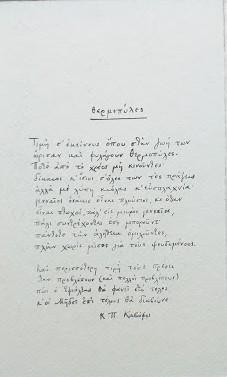 Θερμοπύλες
Τιμή σ' εκείνους όπου στην ζωή των
ώρισαν και φυλάγουν Θερμοπύλες.
Ποτέ από το χρέος μη κινούντες·
δίκαιοι κ' ίσιοι σ' όλες των τες πράξεις
αλλά με λύπη κιόλας κ' ευσπλαχνία·
γενναίοι οσάκις είναι πλούσιοι, κι όταν
είναι πτωχοί, πάλ' εις μικρόν γενναίοι,
πάλι συντρέχοντες όσο μπορούνε·
πάντοτε την αλήθεια ομιλούντες,
πλην χωρίς μίσος για τους ψευδομένους.
Και περισσότερη τιμή τούς πρέπει
όταν προβλέπουν (και πολλοί προβλέπουν)
πώς ο Εφιάλτης θα φανεί στο τέλος
κ' οι Μήδοι επί τέλους θα διαβούνε
Κ Π Καβάφη